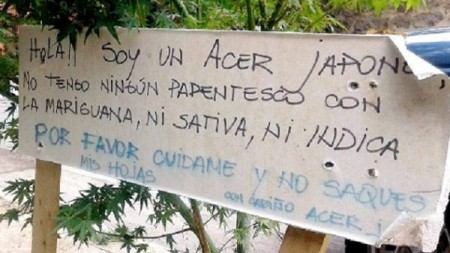 HOLA!! SOY UN ACER JAPONÉ
NO TENGO NINGÚN PARENTESCO CON
LA MARIGUANA, NI SATIVA, NI INDICA
POR FAVOR CUÍDAME Y NO SAQUES
MIS HOJAS
CON CARIÑO ACER J